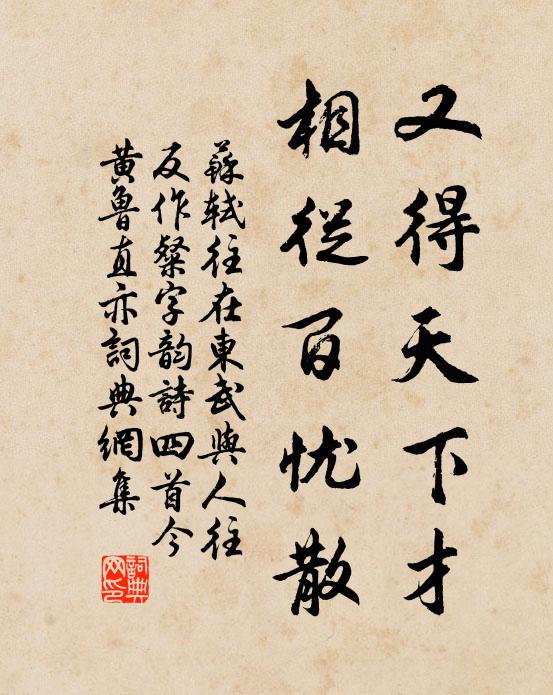 又得天下才
相從百忧散
蘇軾往在東武與人往
反作粲字韵詩四首今
黃魯直亦詞典網集
詞典
网印